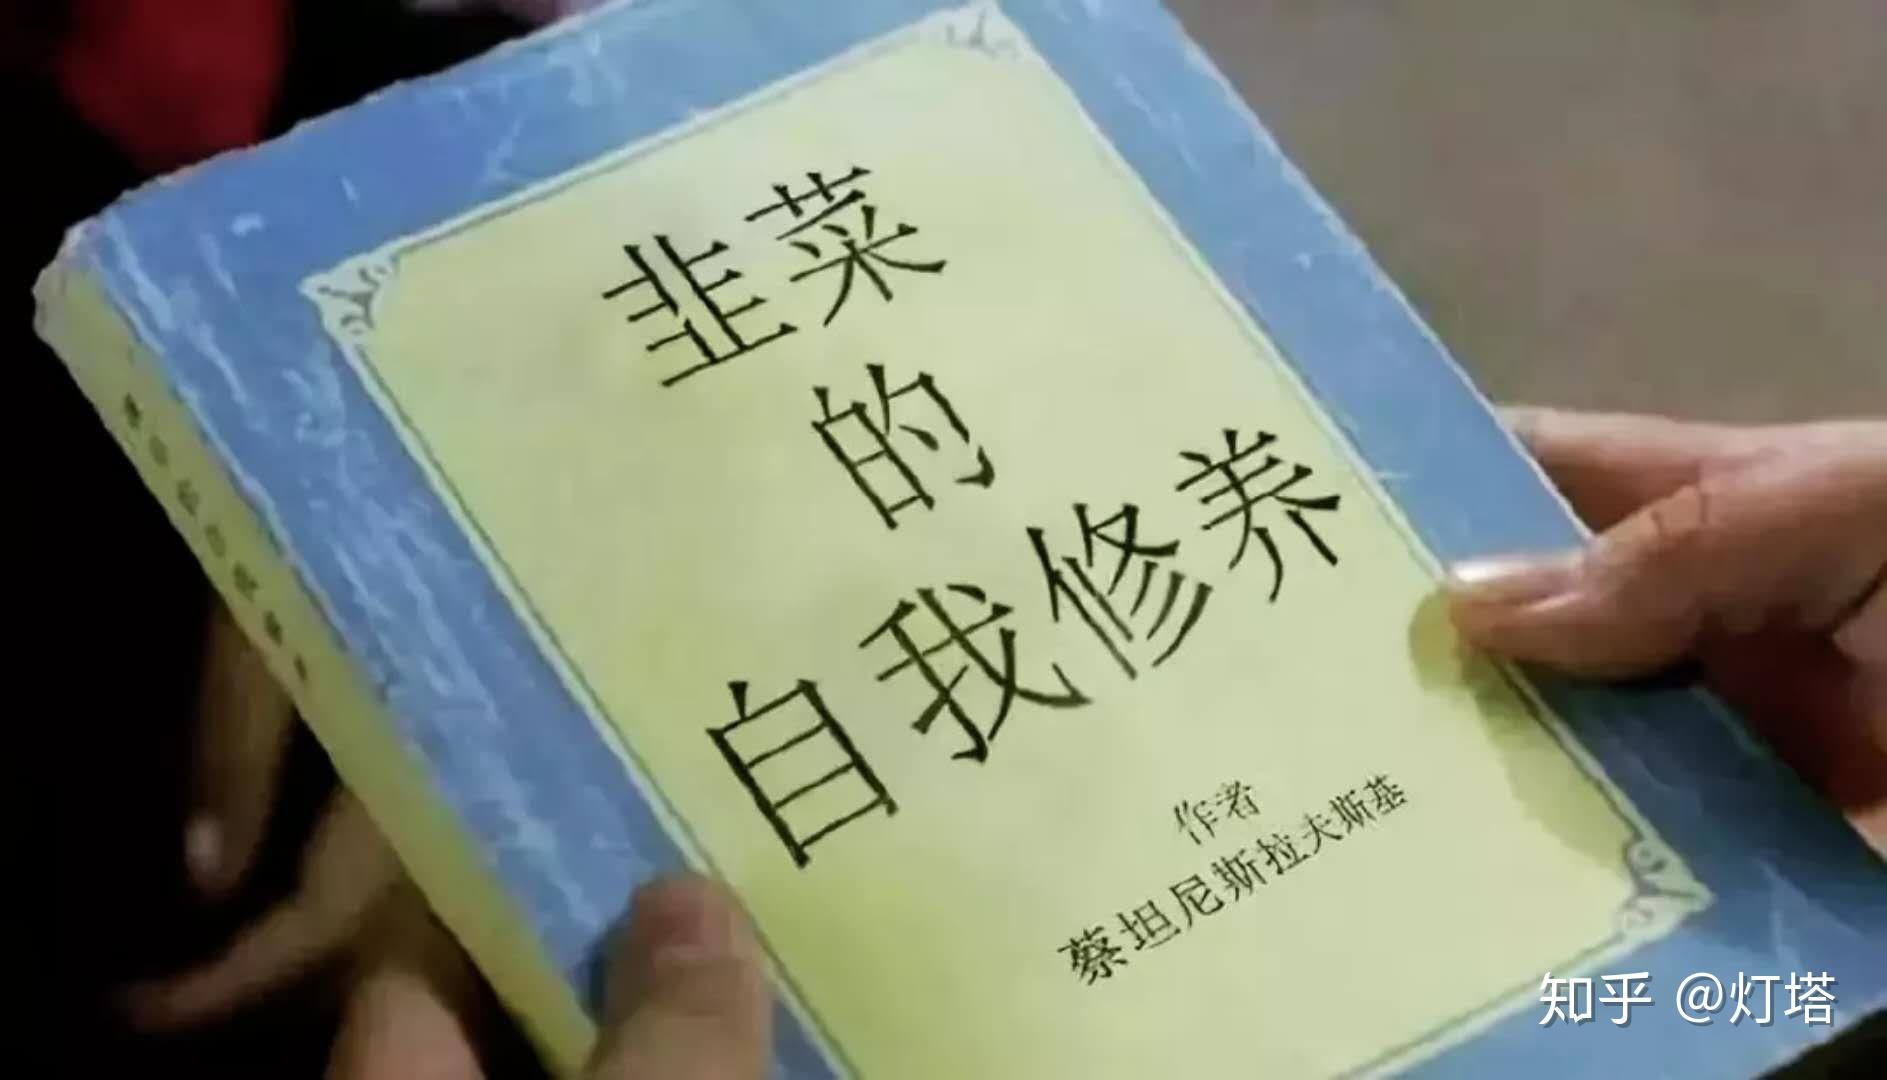 韭菜
的
自我修养
作者
蔡坦尼斯拉夫斯基
知乎 @灯塔